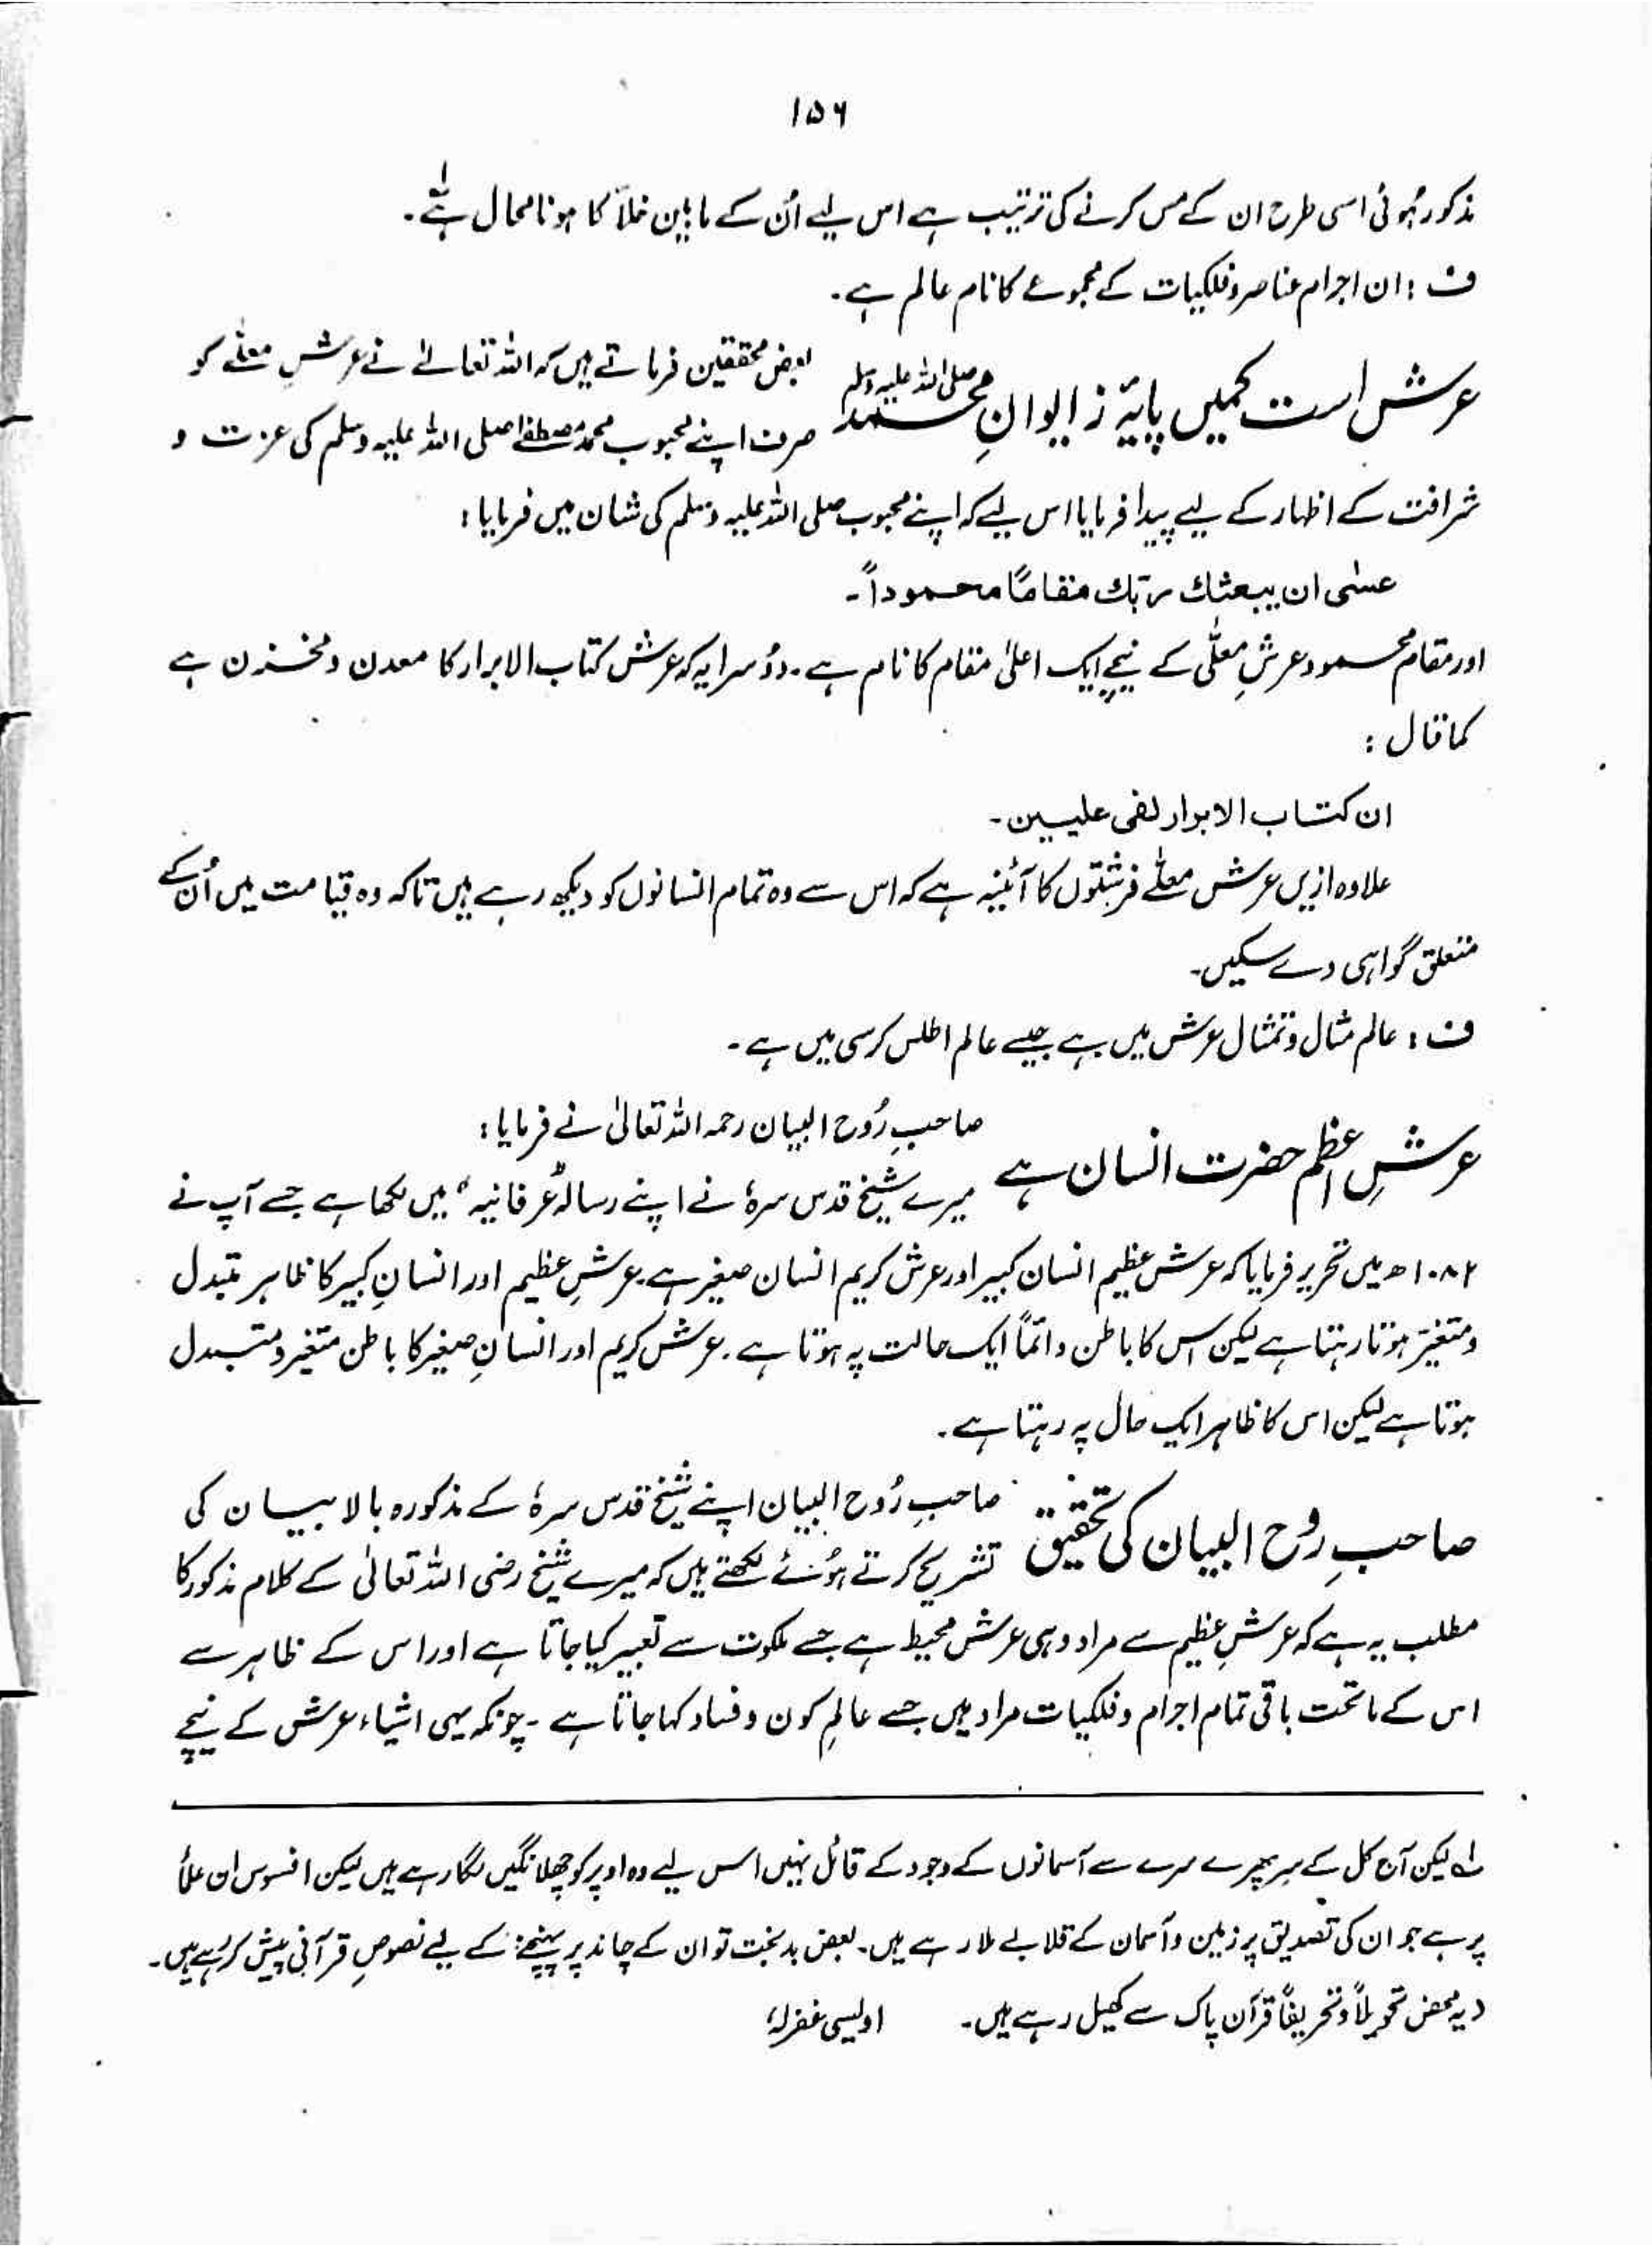 ۱۵۶
مذکور ہُوئی اسی طرح ان کے مس کرنے کی ترتیب ہے اس لیے اُن کے مابین خلاَ کا ہونا محال ہے۔
ف : ان اجرام عناصر و فلکیات کے مجموعے کا نام عالم ہے۔
عرش است کمیں پایۂ ز ایوانِ محمد صلی اللہ علیہ وسلم
بعض محققین فرماتے ہیں کہ اللہ تعالےٰ نے عرشِ معلّے کو
صرف اپنے محبوب محمد مصطفےٰ صلی اللہ علیہ وسلم کی عزت و
شرافت کے اظہار کے لیے پیدا فرمایا اس لیے کہ اپنے محبوب صلی اللہ علیہ وسلم کی شان میں فرمایا :
عسٰی ان یبعثك ربّك مقامًا محموداً۔
اور مقام محمود عرشِ معلّٰی کے نیچے ایک اعلیٰ مقام کا نام ہے۔ دُوسرا یہ کہ عرش کتاب الابرار کا معدن و مخزن ہے
کما قال :
ان کتاب الابرار لفی علیین۔
علاوہ ازیں عرش معلّے فرشتوں کا آئینہ ہے کہ اس سے وہ تمام انسانوں کو دیکھ رہے ہیں تاکہ وہ قیامت میں اُن کے
متعلق گواہی دے سکیں۔
ف : عالم مثال و تمثال عرش میں ہے جیسے عالم اطلس کرسی میں ہے۔
عرشِ اعظم حضرت انسان ہے
صاحبِ رُوح البیان رحمہ اللہ تعالیٰ نے فرمایا :
میرے شیخ قدس سرہٗ نے اپنے رسالہ عُرفانیہ" میں لکھا ہے جسے آپ نے
۱۰۸۲ھ میں تحریر فرمایا کہ عرش عظیم انسان کبیر اور عرش کریم انسان صغیر ہے۔ عرشِ عظیم اور انسانِ کبیر کا ظاہر متبدل
و متغیّر ہوتا رہتا ہے لیکن اس کا باطن دائماً ایک حالت پہ ہوتا ہے۔ عرش کریم اور انسانِ صغیر کا باطن متغیر و متبدل
ہوتا ہے لیکن اس کا ظاہر ایک حال پہ رہتا ہے۔
صاحبِ روح البیان کی تحقیق
صاحبِ رُوح البیان اپنے شیخ قدس سرہٗ کے مذکورہ بالا بیان کی
تشریح کرتے ہُوئے لکھتے ہیں کہ میرے شیخ رضی اللہ تعالیٰ کے کلام مذکور کا
مطلب یہ ہے کہ عرشِ عظیم سے مراد وہی عرش محیط ہے جسے ملکوت سے تعبیر کیا جاتا ہے اور اس کے ظاہر سے
اس کے ماتحت باقی تمام اجرام و فلکیات مراد ہیں جسے عالمِ کون و فساد کہا جاتا ہے۔ چونکہ یہی اشیاء عرش کے نیچے
لہ لیکن آج کل کے سر پھرے سرے سے آسمانوں کے وجود کے قائل نہیں اس لیے وہ اوپر کو چھلانگیں لگا رہے ہیں لیکن افسوس ان علمأ
پر ہے جو ان کی تصدیق پر زمین و آسمان کے قلابے ملا رہے ہیں۔ بعض بدبخت تو ان کے چاند پر پہنچنے کے لیے نصوصِ قرآنی پیش کر رہے ہیں۔
(یہ محض تحویلاً و تحریفاً قرآن پاک سے کھیل رہے ہیں۔ اویسی غفرلہٗ